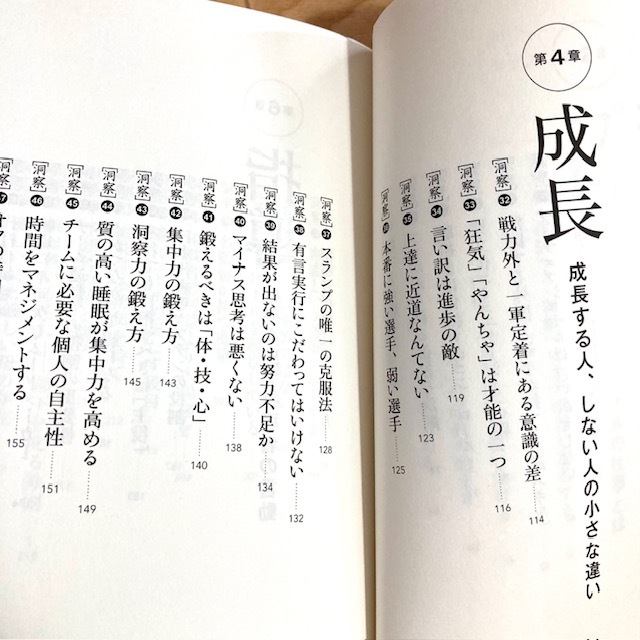 第4章
成長
成長する人、しない人の小さな違い
[洞察]32 戦力外と一軍定着にある意識の差……114
[洞察]33 「狂気」「やんちゃ」は才能の一つ……116
[洞察]34 言い訳は進歩の敵……119
[洞察]35 上達に近道なんてない……123
[洞察]36 本番に強い選手、弱い選手……125
[洞察]37 スランプの唯一の克服法……128
[洞察]38 有言実行にこだわってはいけない……132
[洞察]39 結果が出ないのは努力不足か……134
[洞察]40 マイナス思考は悪くない……138
[洞察]41 鍛えるべきは「体・技・心」……140
[洞察]42 集中力の鍛え方……143
[洞察]43 洞察力の鍛え方……145
[洞察]44 質の高い睡眠が集中力を高める……149
[洞察]45 チームに必要な個人の自主性……151
[洞察]46 時間をマネジメントする……155
[洞察]